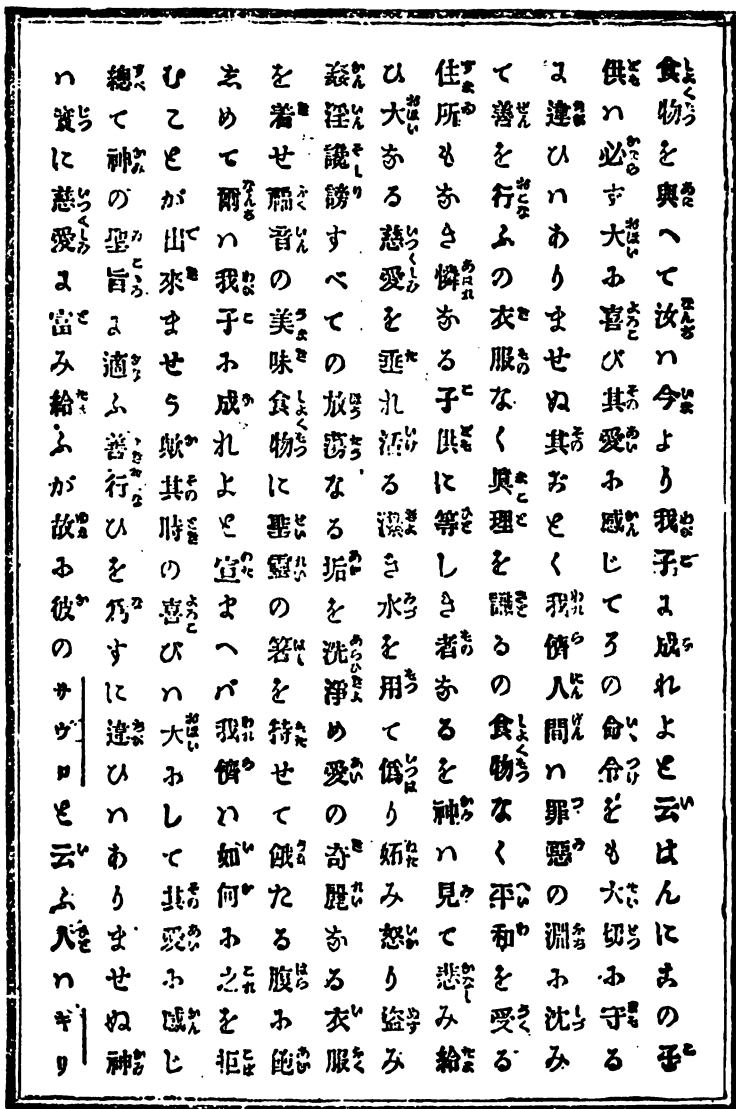 食物を與へて汝ハ今より我子に成れよと云はんにあの子
供ハ必ず大おに喜び其愛お感じてろの命令をも大切お守る
に違ひハありませぬ其おとく我儕人間ハ罪惡の淵お沈み
て善を行ふの衣服なく眞理を讓るの食物なく平和を受る
住所もなき憐なる子供に等しき者なるを神ハ見て悲み給
ひ大なる慈愛を垂れ活る潔き水を用て僞り妬み怒り盗み
姦淫讒謗すべての放蕩なる垢を洗淨め愛の奇麗なる衣服
を着せ福音の美味食物に聖靈の箸を持せて餓たる腹お飽
しめて爾ハ我子お成れよと宣まへバ我儕ハ如何お之を拒
むことが出來ませう歟其時の喜びハ大おして其愛お感じ
總て神の聖旨に適ふ善行ひを爲すに違ひハありませぬ神
ハ實に慈愛に富み給ふが故お彼のサヴロと云ふ人ハギリ